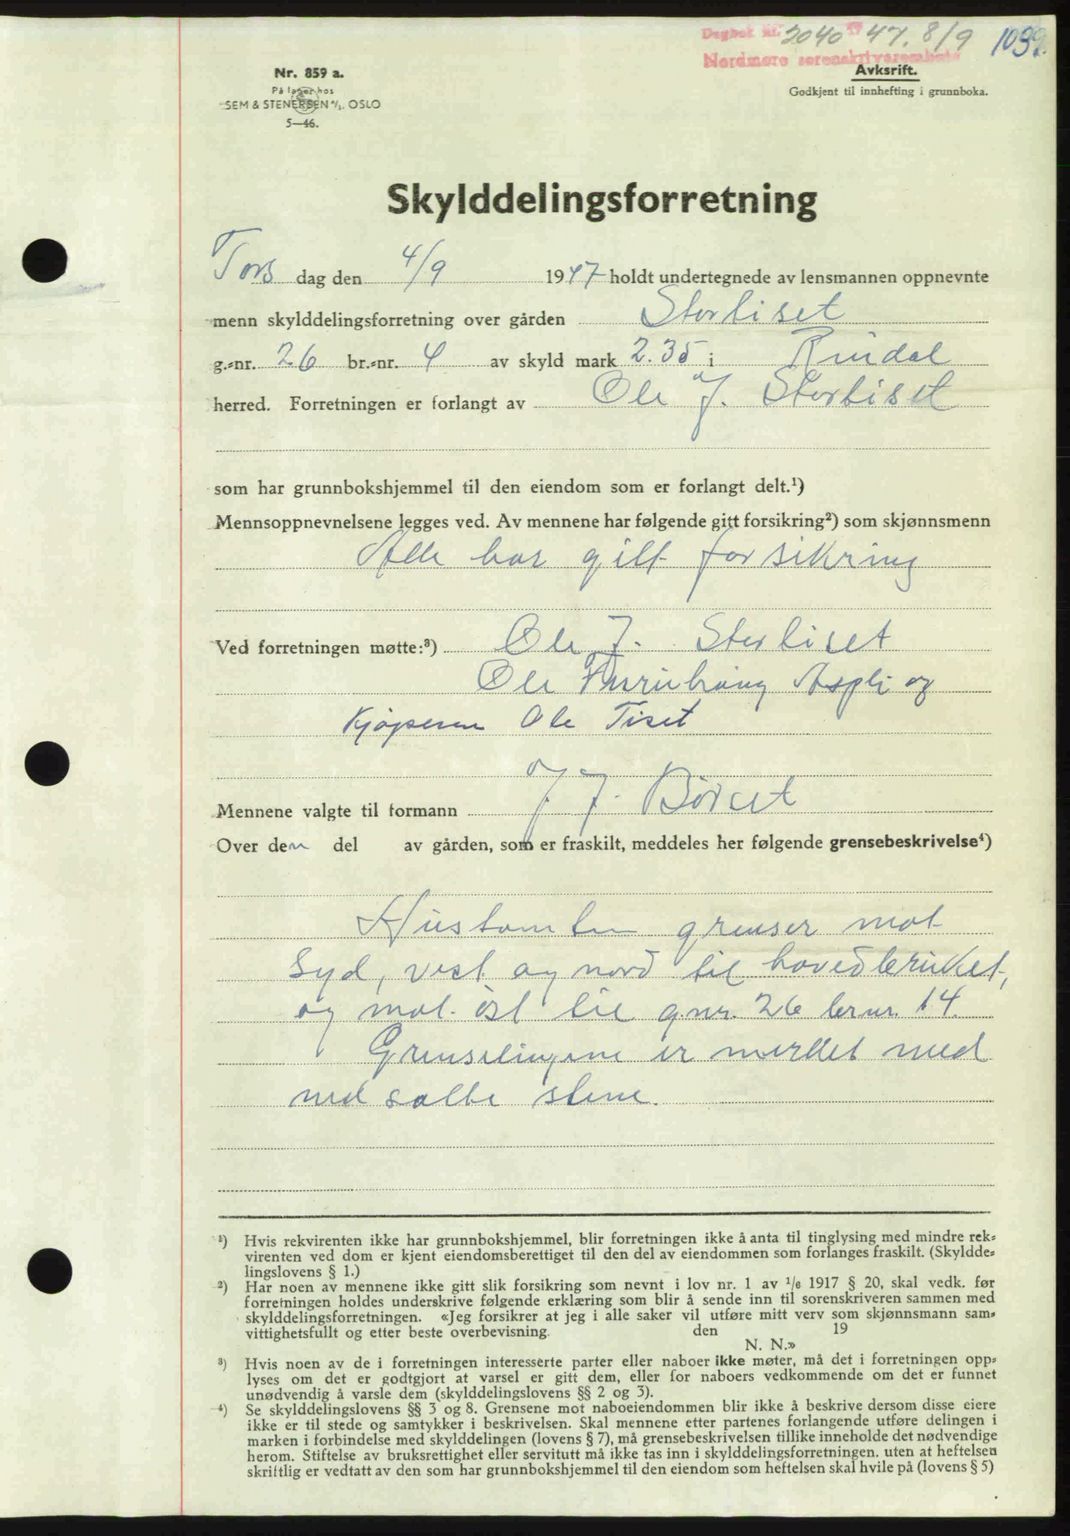 Dagbok nr. 2040 19 47. 8/9 1039.
Nordmøre sorenskriverembete
Nr. 859 a.
På lager hos
SEM & STENERSEN A/S. OSLO
5—46.
Avksrift.
Godkjent til innhefting i grunnboka.
Skylddelingsforretning
Tors dag den 4/9 1947 holdt undertegnede av lensmannen oppnevnte
menn skylddelingsforretning over gården Storliset
g.-nr. 26 br.-nr. 4 av skyld mark 2.35 i Rindal
herred. Forretningen er forlangt av Ole J. Storliset
som har grunnbokshjemmel til den eiendom som er forlangt delt.¹)
Mennsoppnevnelsene legges ved. Av mennene har følgende gitt forsikring²) som skjønnsmenn
Alle har gitt forsikring
Ved forretningen møtte:³) Ole J. Storliset
Ole Furuhaug Aspli og
Kjøperen Ole Tiset
Mennene valgte til formann J. J. Børset
Over den del av gården, som er fraskilt, meddeles her følgende grensebeskrivelse⁴)
Hustomten grenser mot
Syd, vest og nord til hovedbruket,
og mot øst til gnr. 26 brnr. 14.
Grenselinjene er merket med
nedsatte stene.
¹) Hvis rekvirenten ikke har grunnbokshjemmel, blir forretningen ikke å anta til tinglysing med mindre rek-
virenten ved dom er kjent eiendomsberettiget til den del av eiendommen som forlanges fraskilt. (Skyldde-
lingslovens § 1.)
²) Har noen av mennene ikke gitt slik forsikring som nevnt i lov nr. 1 av 1/6 1917 § 20, skal vedk. før
forretningen holdes underskrive følgende erklæring som blir å sende inn til sorenskriveren sammen med
skylddelingsforretningen. «Jeg forsikrer at jeg i alle saker vil utføre mitt verv som skjønnsmann sam-
vittighetsfullt og etter beste overbevisning. den 19
N. N.»
³) Hvis noen av de i forretningen interesserte parter eller naboer ikke møter, må det i forretningen opp-
lyses om det er godtgjort at varsel er gitt dem, eller for naboers vedkommende om det er funnet
unødvendig å varsle dem (skylddelingslovens §§ 2 og 3).
⁴) Se skylddelingslovens §§ 3 og 8. Grensene mot naboeiendommen blir ikke å beskrive dersom disse eiere
ikke er til stede og samtykker i beskrivelsen. Skal mennene etter partenes forlangende utføre delingen i
marken i forbindelse med skylddelingen (lovens § 7), må grensebeskrivelsen tillike inneholde det nødvendige
herom. Stiftelse av bruksrettighet eller servitutt må ikke tas inn i skylddelingsforretningen, uten at heftelsen
skriftlig er vedtatt av den som har grunnbokshjemmel til den eiendom som heftelsen skal hvile på (lovens § 5)